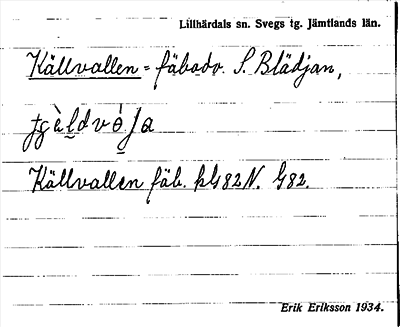 Lillhärdals sn. Svegs tg. Jämtlands län.
Källvallen = fäbodv. S. Blädjan,
Källvallen fäb. kbl 82 N. G82.
Erik Eriksson 1934.